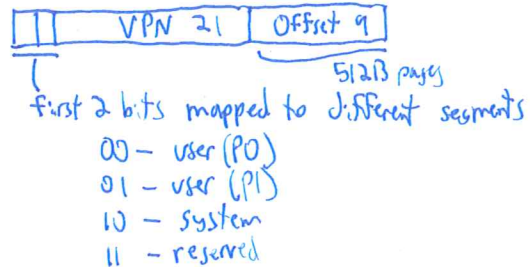 VPN 21 Offset 9
512B pages
first 2 bits mapped to different segments
00 - user (P0)
01 - user (P1)
10 - system
11 - reserved